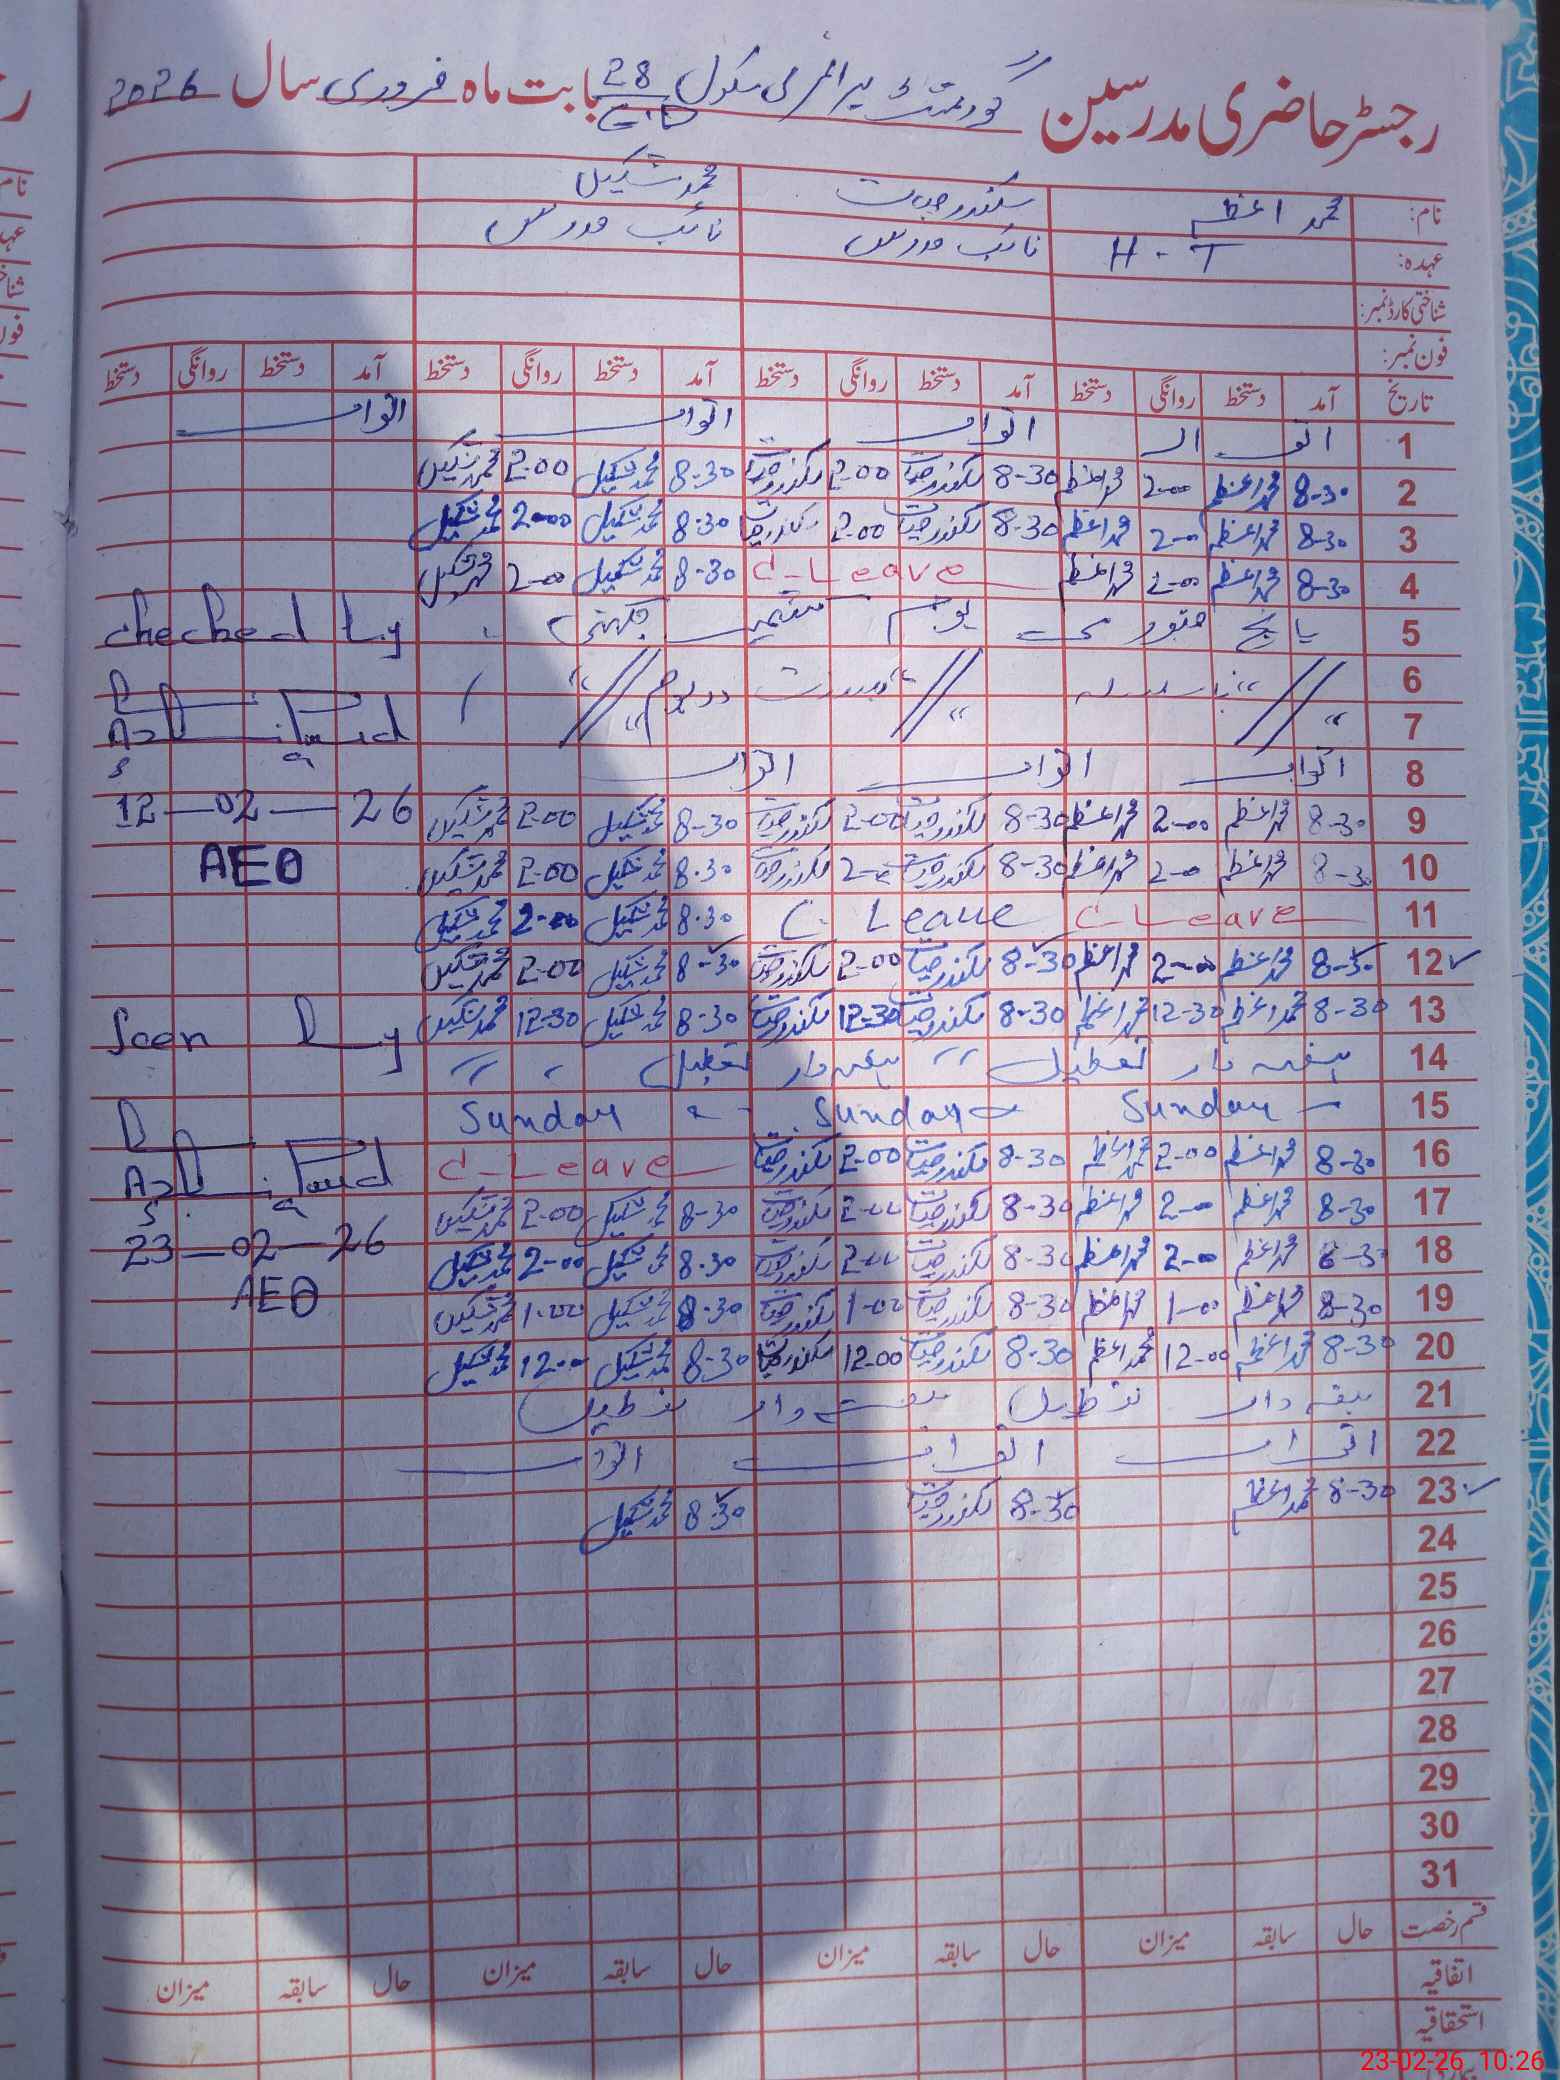 رجسٹر حاضری مدرسین گورنمنٹ پرائمری سکول 28 بابت ماہ فروری سال 2026
نام: محمد اعظم سکندر حیات محمد شکیل
عہدہ: H-T نائب مدرس نائب مدرس
شناختی کارڈ نمبر:
فون نمبر:
تاریخ آمد دستخط روانگی دستخط آمد دستخط روانگی دستخط آمد دستخط روانگی دستخط آمد دستخط روانگی دستخط
1 اتوار اتوار اتوار اتوار
2 8-30 محمد اعظم 2-00 محمد اعظم 8-30 سکندر حیات 2-00 سکندر حیات 8-30 محمد شکیل 2-00 محمد شکیل
3 8-30 محمد اعظم 2-00 محمد اعظم 8-30 سکندر حیات 2-00 سکندر حیات 8-30 محمد شکیل 2-00 محمد شکیل
4 8-30 محمد اعظم 2-00 محمد اعظم C-Leave 8-30 محمد شکیل 2-00 محمد شکیل
5 پانچ فروری یوم کشمیر Checked by
6 بسلسلہ بسنت
7
8 اتوار اتوار اتوار
9 8-30 محمد اعظم 2-00 محمد اعظم 8-30 سکندر حیات 2-00 سکندر حیات 8-30 محمد شکیل 2-00 محمد شکیل 12-02-26
10 8-30 محمد اعظم 2-00 محمد اعظم 8-30 سکندر حیات 2-00 سکندر حیات 8-30 محمد شکیل 2-00 محمد شکیل AEO
11 C-Leave C-Leave 8-30 محمد شکیل 2-00 محمد شکیل
12 8-30 محمد اعظم 2-00 محمد اعظم 8-30 سکندر حیات 2-00 سکندر حیات 8-30 محمد شکیل 2-00 محمد شکیل
13 8-30 محمد اعظم 12-30 محمد اعظم 8-30 سکندر حیات 12-30 سکندر حیات 8-30 محمد شکیل 12-30 محمد شکیل Seen by
14 ہفتہ وار تعطیل ہفتہ وار تعطیل
15 Sunday Sunday Sunday
16 8-30 محمد اعظم 2-00 محمد اعظم 8-30 سکندر حیات 2-00 سکندر حیات C-Leave
17 8-30 محمد اعظم 2-00 محمد اعظم 8-30 سکندر حیات 2-00 سکندر حیات 8-30 محمد شکیل 2-00 محمد شکیل
18 8-30 محمد اعظم 2-00 محمد اعظم 8-30 سکندر حیات 2-00 سکندر حیات 8-30 محمد شکیل 2-00 محمد شکیل 23-02-26
19 8-30 محمد اعظم 1-00 محمد اعظم 8-30 سکندر حیات 1-00 سکندر حیات 8-30 محمد شکیل 1-00 محمد شکیل AEO
20 8-30 محمد اعظم 12-00 محمد اعظم 8-30 سکندر حیات 12-00 سکندر حیات 8-30 محمد شکیل 12-00 محمد شکیل
21 ہفتہ وار تعطیل ہفتہ وار تعطیل
22 اتوار اتوار اتوار
23 8-30 محمد اعظم 8-30 سکندر حیات 8-30 محمد شکیل
24
25
26
27
28
29
30
31
قسم رخصت حال سابقہ میزان حال سابقہ میزان حال سابقہ میزان حال سابقہ میزان
اتفاقیہ
استحقاقیہ
23-02-26 10:26